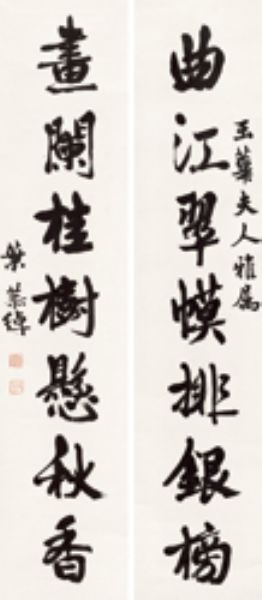 玉華夫人雅屬
曲江翠幙排銀榜
畫闌桂樹懸秋香
葉恭綽